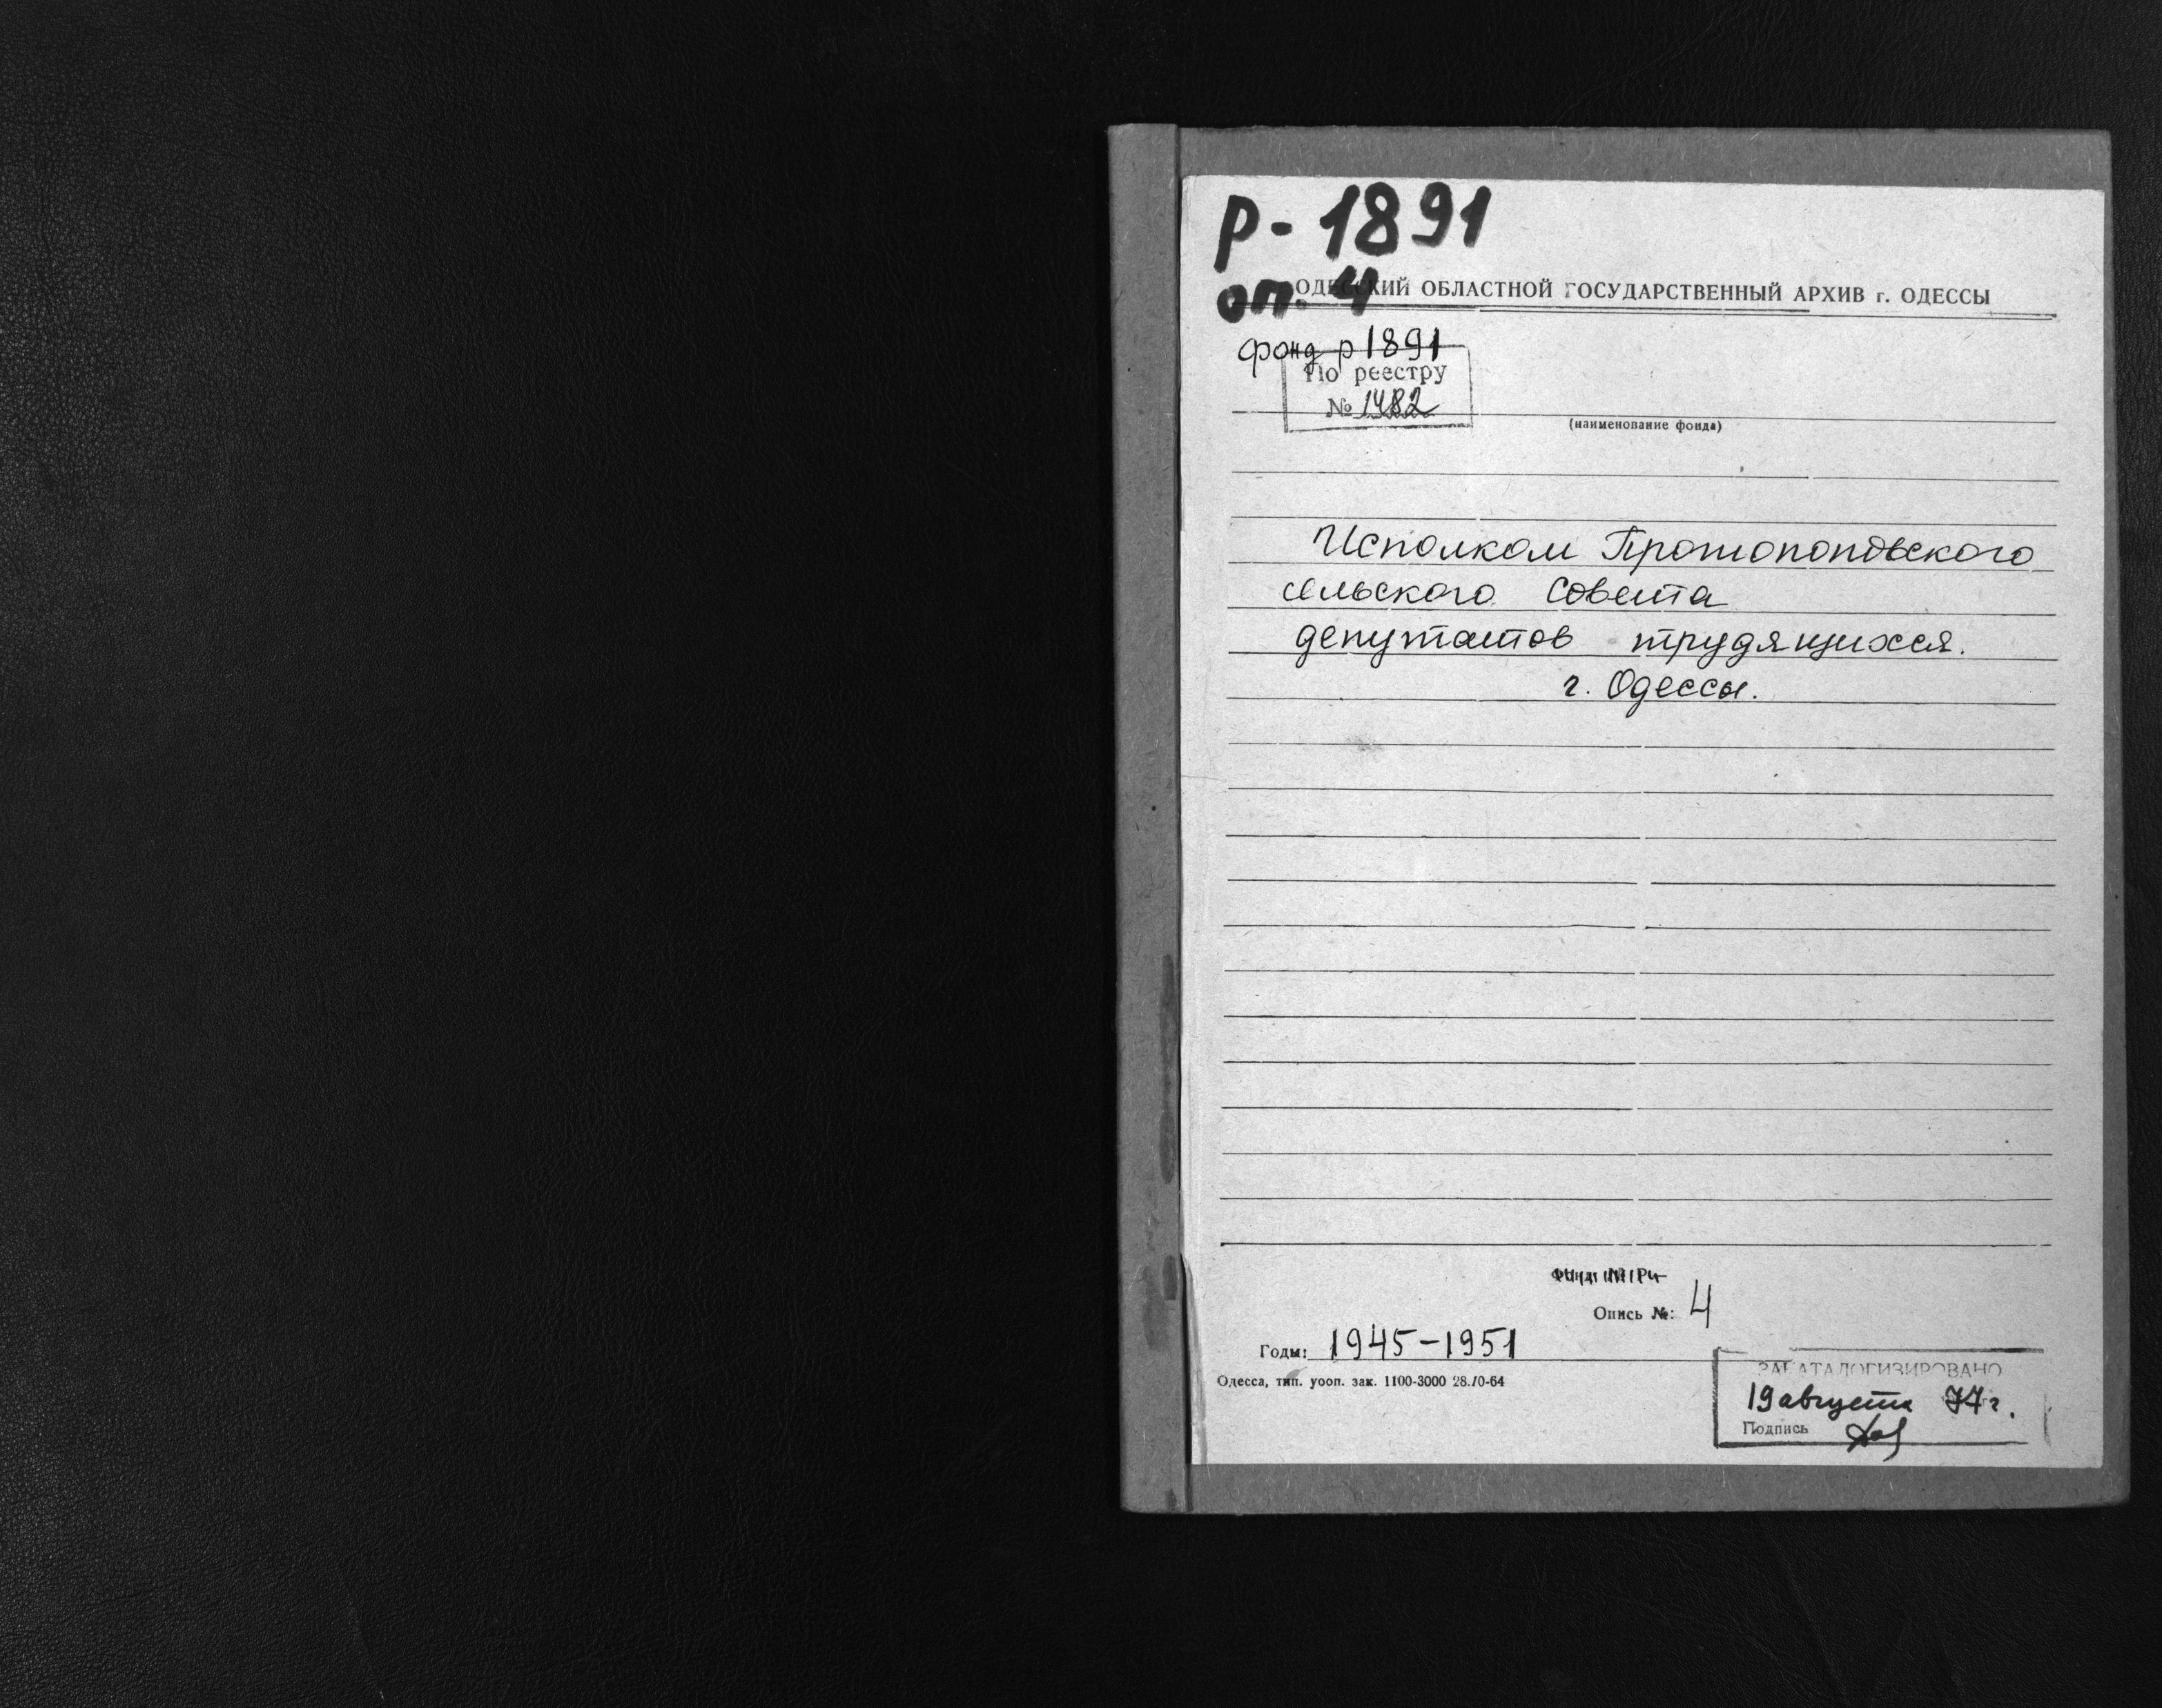 Р-1891
оп. 4
ОДЕССКИЙ ОБЛАСТНОЙ ГОСУДАРСТВЕННЫЙ АРХИВ г. ОДЕССЫ
фонд р 1891
По реестру
№ 1482
(наименование фонда)
Исполком Протопоповского
сельского Совета
депутатов трудящихся.
г. Одессы.
Опись №: 4
Годы: 1945-1951
Одесса, тип. уооп. зак. 1100-3000 28.10-64
ЗАКАТАЛОГИЗИРОВАНО
19 августа 77 г.
Подпись